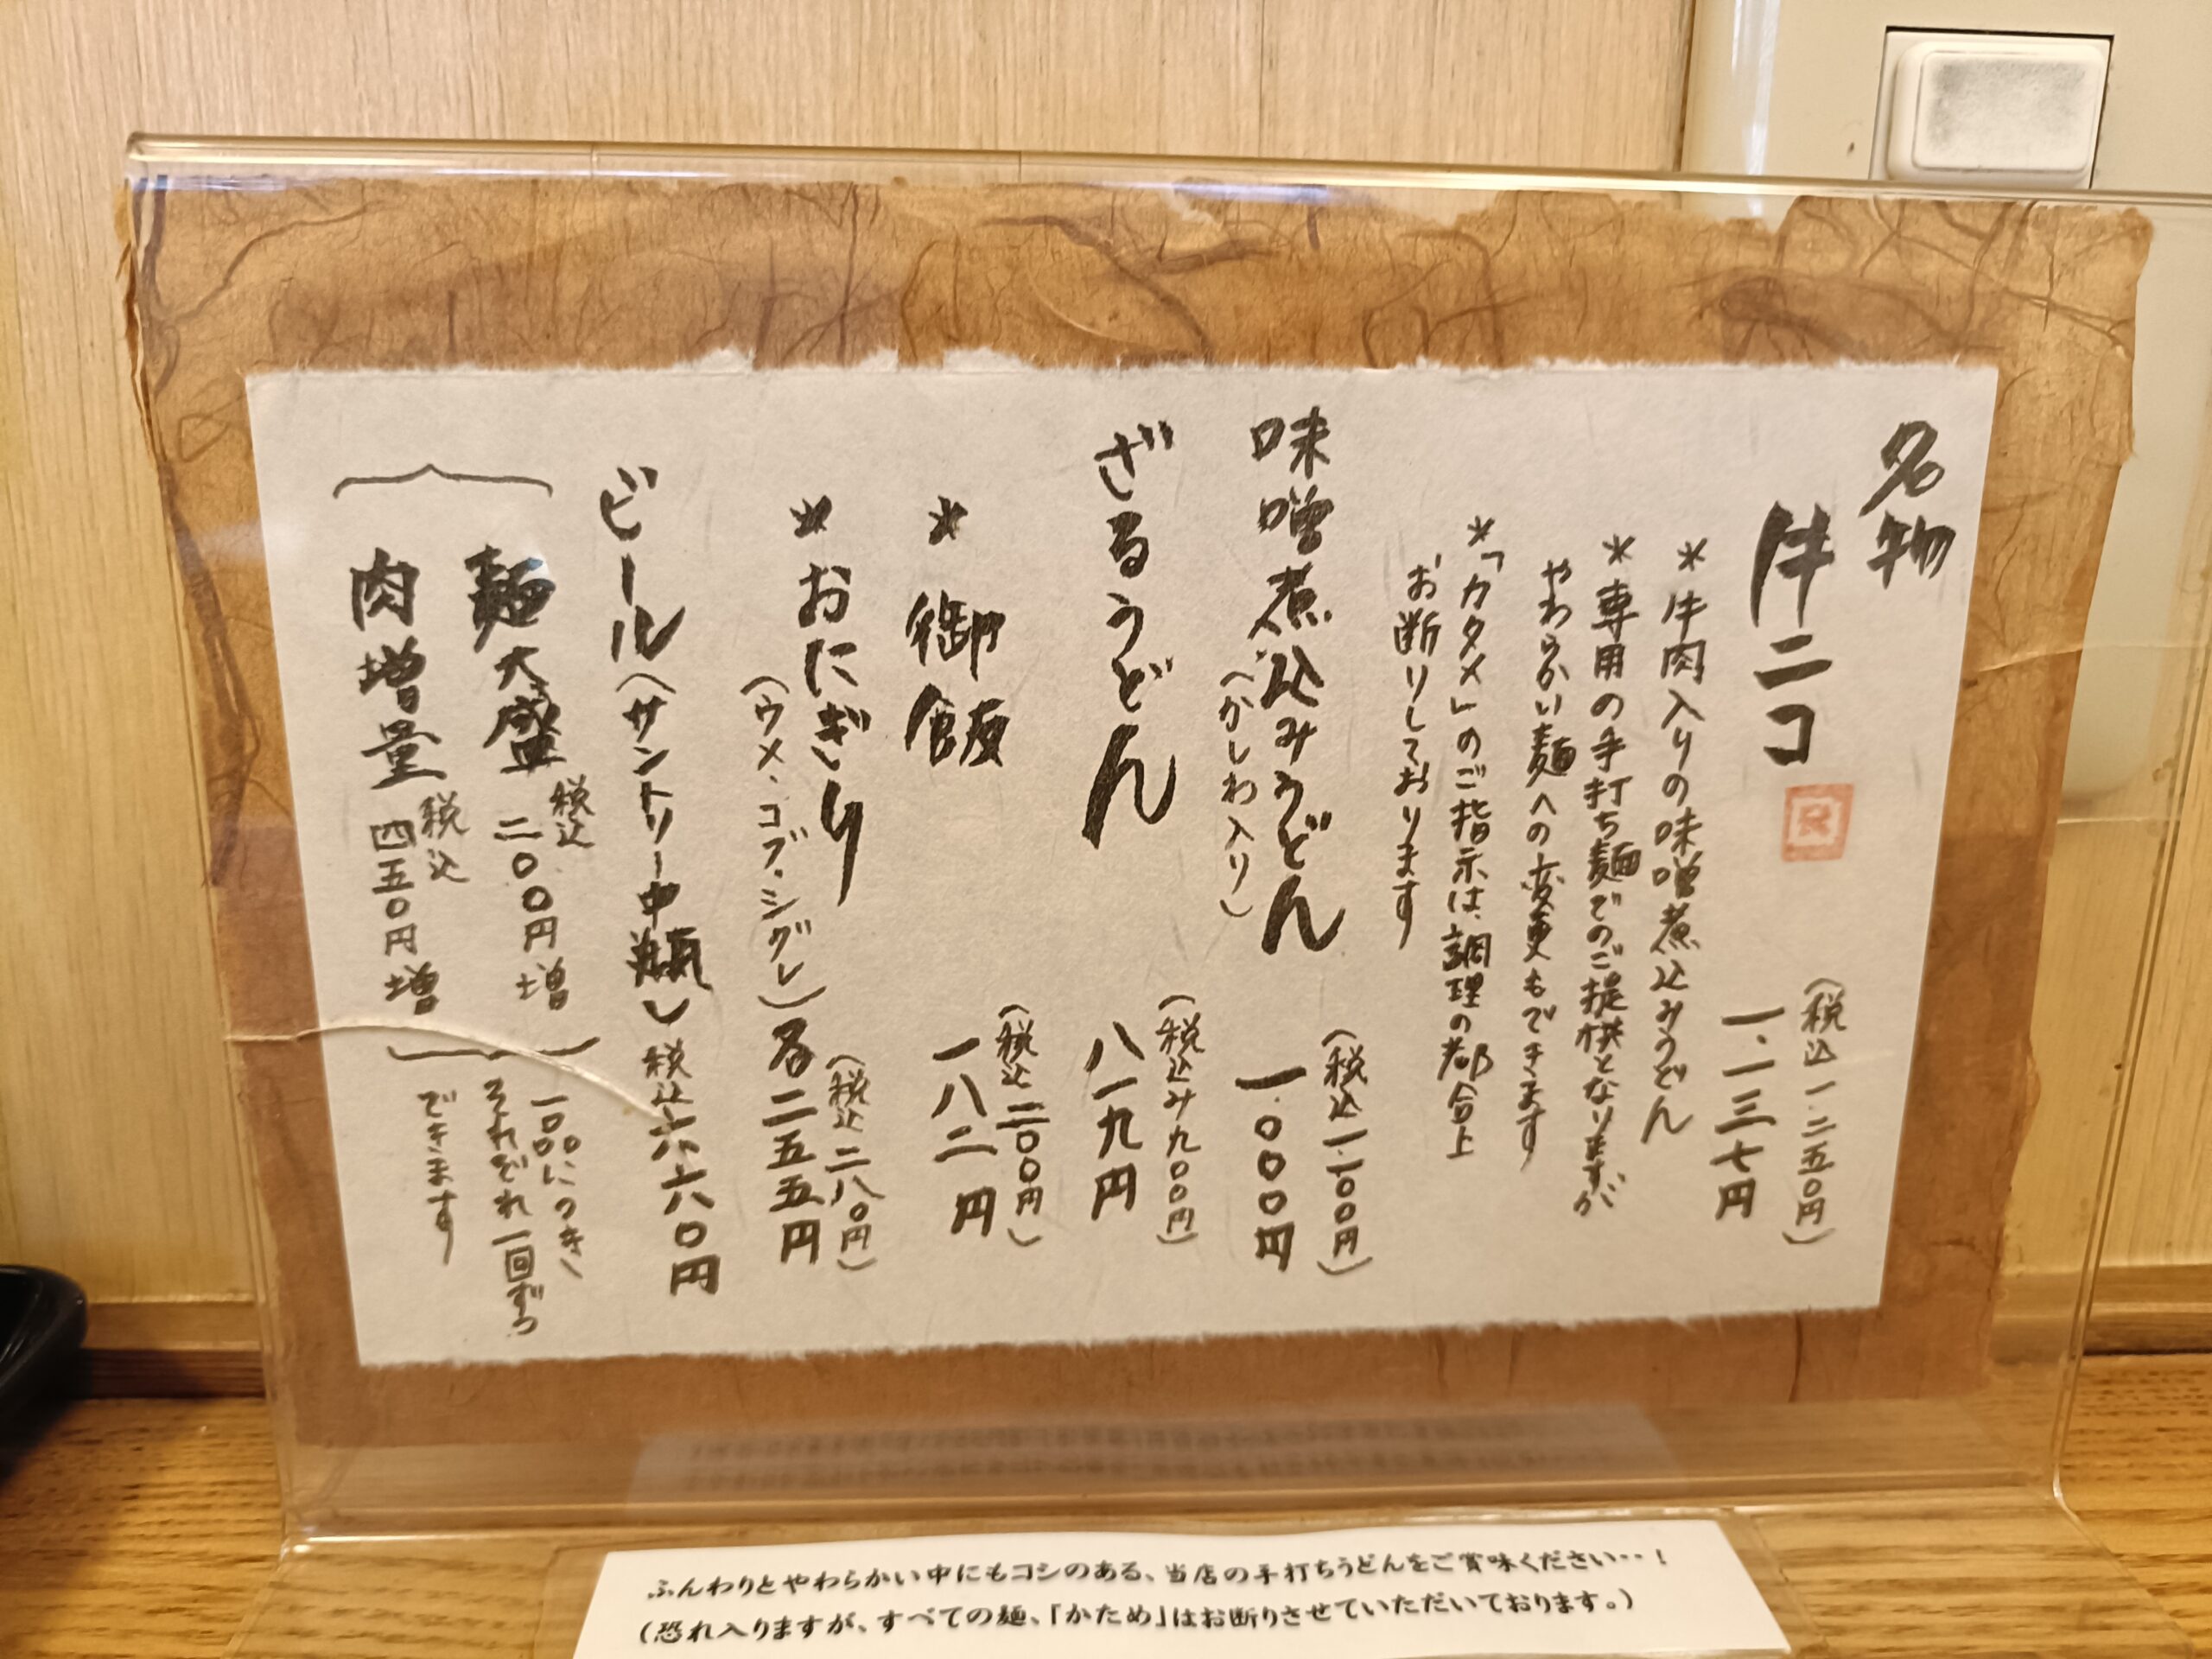 名物
牛二コ
(税込一.二五〇円)
一.一三七円
*牛肉入りの味噌煮込みうどん
*専用の手打ち麺でのご提供となりますが
やわらかい麺への変更もできます
*「カタメ」のご指示は、調理の都合上
お断りしております
味噌煮込みうどん
(かしわ入り)
(税込一.一〇〇円)
一.〇〇〇円
ざるうどん
(税込み九〇〇円)
八一九円
*御飯
(税込二〇〇円)
一八二円
*おにぎり
(ウメ・コブ・シグレ)
(税込二八〇円)
各二五五円
ビール(サントリー中瓶)税込六六〇円
麺大盛 税込 二〇〇円増
肉増量 税込 四五〇円増
一〇〇〇につき、
それぞれ一回ずつ
できます
ふんわりとやわらかい中にもコシのある、当店の手打ちうどんをご賞味ください‥!
(恐れ入りますが、すべての麺、「かため」はお断りさせていただいております。)